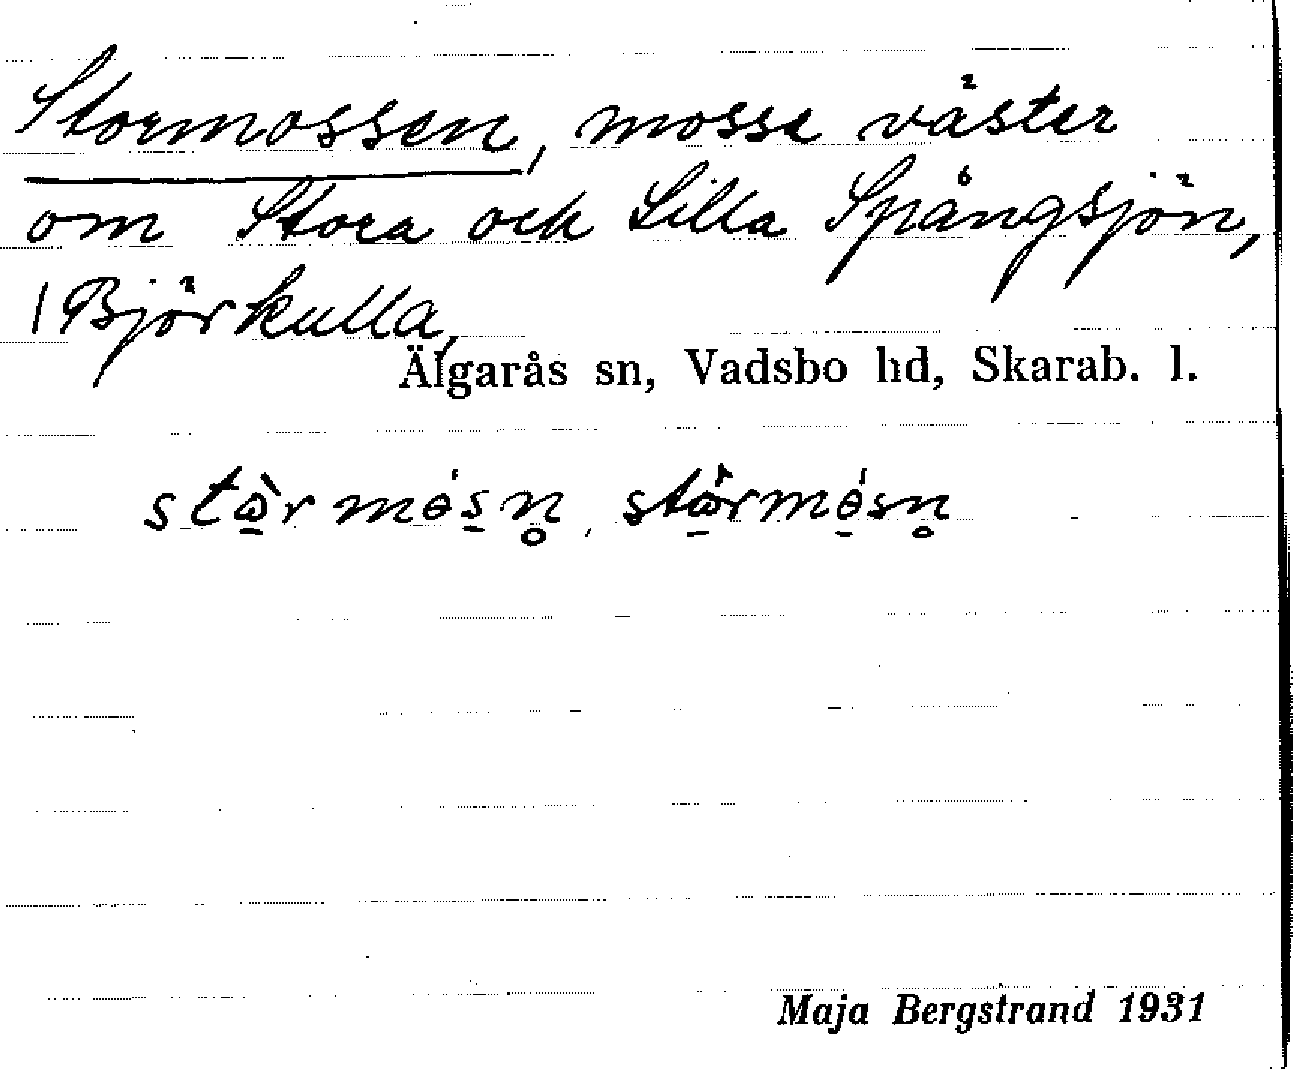 Stormossen, mosse väster
om Stora och Lilla Spångsjön,
1 Björkulla,
Älgarås sn, Vadsbo hd, Skarab. l.
stὼ̠rmɵ́s̠n̥, stὼ̠rmɵ̠́sn̥
Maja Bergstrand 1931